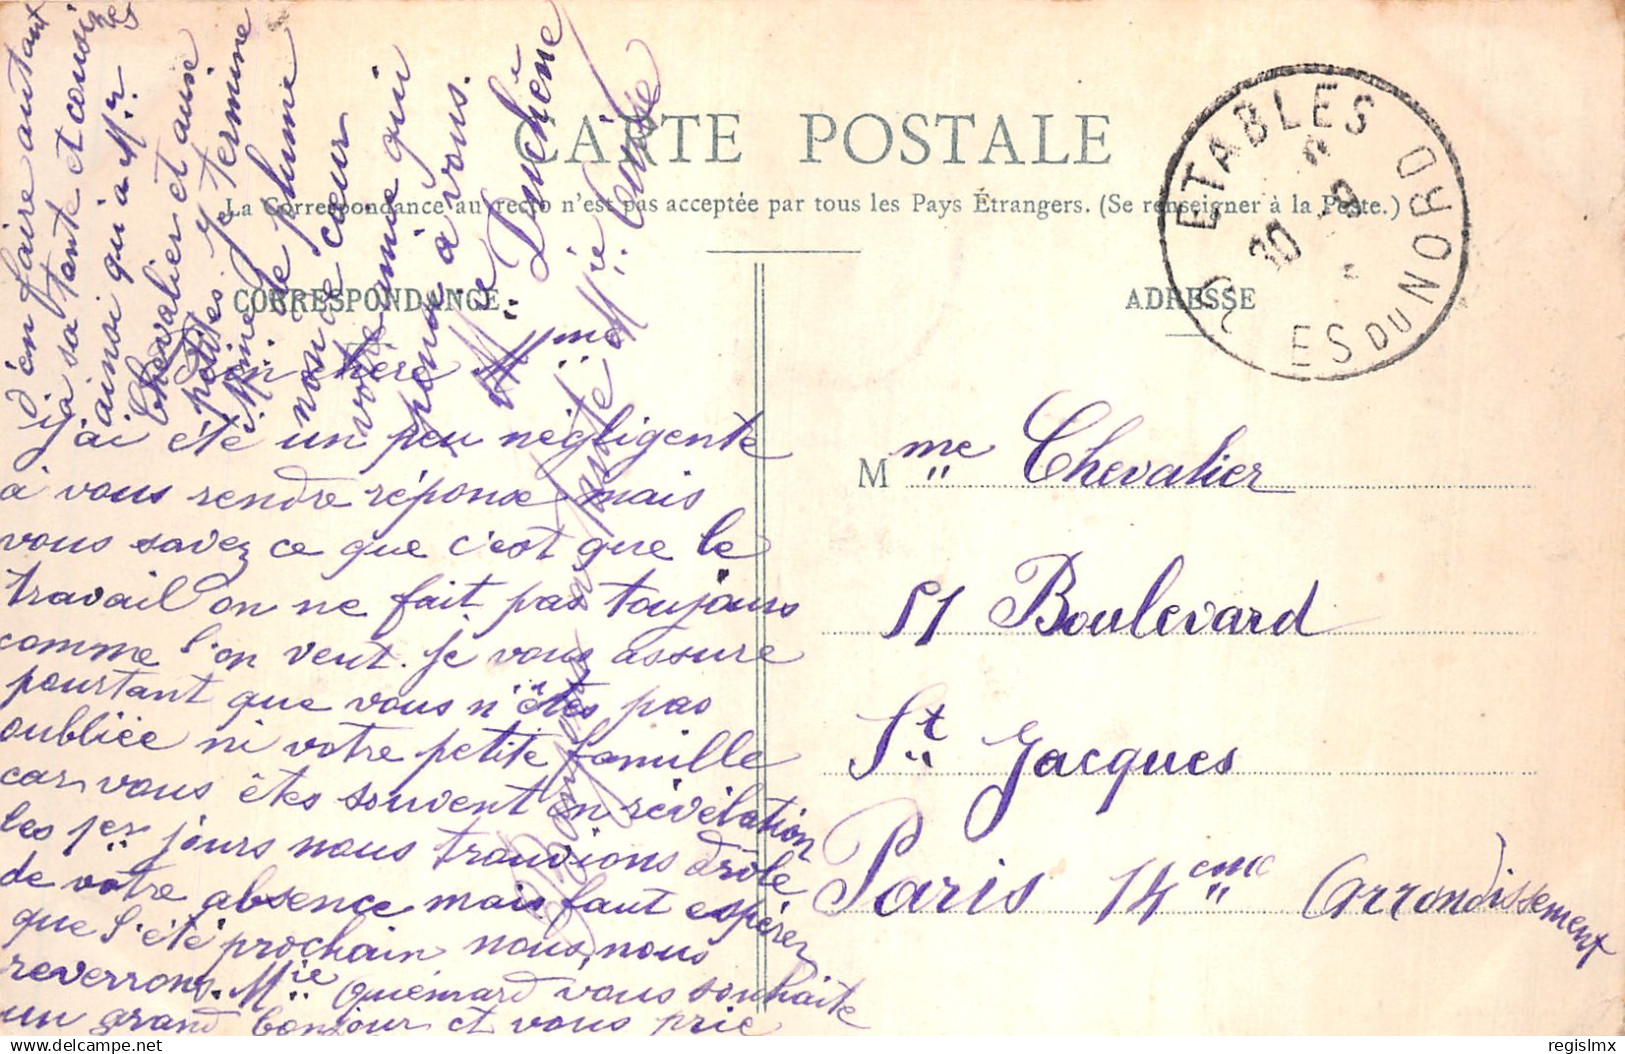 CARTE POSTALE
La Correspondance au recto n'est pas acceptée par tous les Pays Étrangers. (Se renseigner à la Poste.)
CORRESPONDANCE
ADRESSE
ETABLES
CÔTES DU NORD
Bien chère Mme
j'ai été un peu négligente
à vous rendre réponse mais
vous savez ce que c'est que le
travail on ne fait pas toujours
comme l'on veut. je vous assure
pourtant que vous n'êtes pas
oubliée ni votre petite famille
car vous êtes souvent en révélation
les 1ers jours nous trouvions drôle
de votre absence mais faut espérer
que l'été prochain nous, nous
reverrons. Mie Quémard vous souhaite
un grand bonjour et vous prie
d'en faire autant
à sa tante et cousines
ainsi qui à Mr
Chevalier et aux
petites. Je termine
Mme de plume
non de cœur
votre amie qui
pense à vous.
Me Duchêne
Bonjour à toute Mie Ouisse
Mme Chevalier
51 Boulevard
St Jacques
Paris 14eme Arrondissement
regislmx
delcampe.net